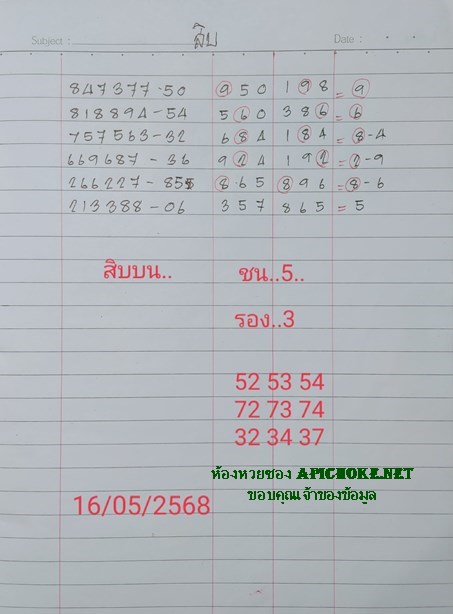 Subject : สิบ Date :
847377-50 950 198 = 9
818894-54 560 386 = 6
757563-32 684 184 = 8-4
669687-36 924 192 = 2-9
266227-855 865 896 = 8-6
213388-06 357 865 = 5
สิบบน.. ชน..5..
รอง..3
52 53 54
72 73 74
32 34 37
ห้องหวยซอง APICHOKE.NET
ขอบคุณเจ้าของข้อมูล
16/05/2568